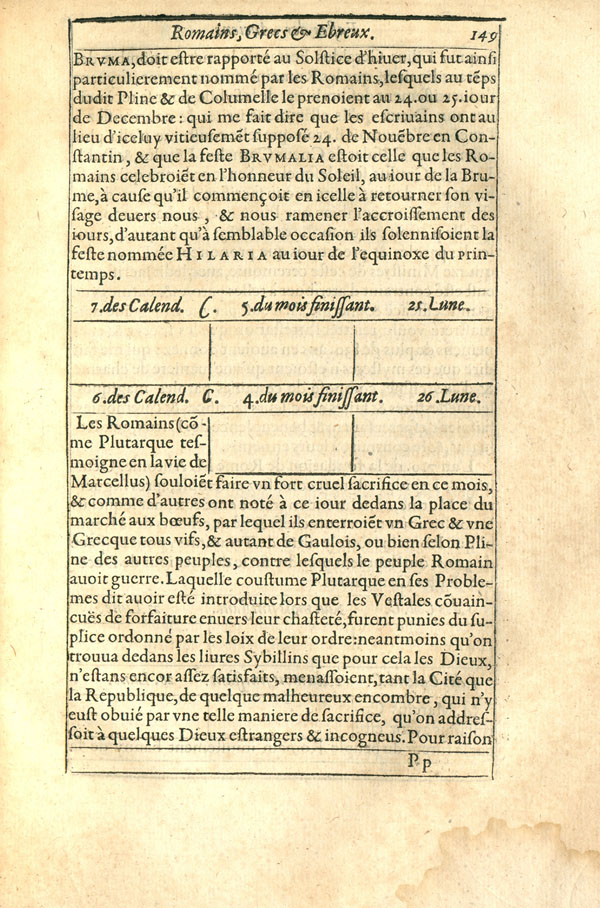 Romains, Grecs & Ebreux. 149
BRVMA, doit eſtre rapporté au Solſtice d'hiuer, qui fut ainſi
particulierement nommé par les Romains, leſquels au tẽps
dudit Pline & de Columelle le prenoient au 24. ou 25. iour
de Decembre : qui me fait dire que les eſcriuains ont au
lieu d'iceluy vitieuſemẽt ſuppoſé 24. de Nouẽbre en Con-
ſtantin, & que la feſte BRVMALIA eſtoit celle que les Ro-
mains celebroiẽt en l'honneur du Soleil, au iour de la Bru-
me, à cauſe qu'il commençoit en icelle à retourner ſon vi-
ſage deuers nous, & nous ramener l'accroiſſement des
iours, d'autant qu'à ſemblable occaſion ils ſolenniſoient la
feſte nommée HILARIA au iour de l'equinoxe du prin-
temps.
7. des Calend. C. 5. du mois finiſſant. 25. Lune.
6. des Calend. C. 4. du mois finiſſant. 26. Lune.
Les Romains (cõ-
me Plutarque teſ-
moigne en la vie de
Marcellus) ſouloiẽt faire vn fort cruel ſacrifice en ce mois,
& comme d'autres ont noté à ce iour dedans la place du
marché aux bœufs, par lequel ils enterroiẽt vn Grec & vne
Grecque tous vifs, & autant de Gaulois, ou bien ſelon Pli-
ne des autres peuples, contre leſquels le peuple Romain
auoit guerre. Laquelle couſtume Plutarque en ſes Proble-
mes dit auoir eſté introduite lors que les Veſtales cõuain-
cuës de forfaiture enuers leur chaſteté, furent punies du ſu-
plice ordonné par les loix de leur ordre: neantmoins qu'on
trouua dedans les liures Sybillins que pour cela les Dieux,
n'eſtans encor aſſez ſatisfaits, menaſſoient, tant la Cité que
la Republique, de quelque malheureux encombre, qui n'y
euſt obuié par vne telle maniere de ſacrifice, qu'on addreſ-
ſoit à quelques Dieux eſtrangers & incogneus. Pour raiſon
Pp